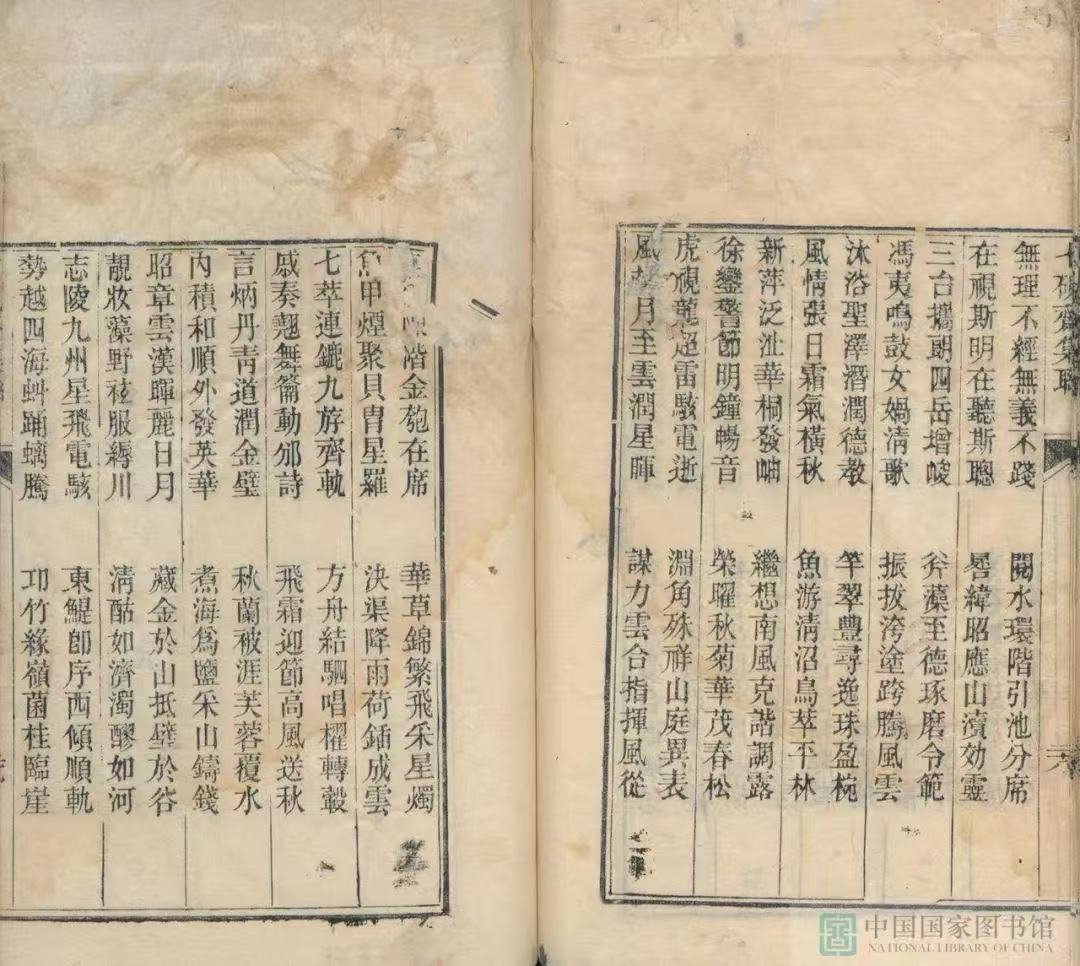 無理不經無義不踐 閱水環階引池分席
在視斯明在聽斯聰 晷緯昭應山瀆効靈
三台攡朗四岳增峻 斧藻至德琢磨令範
馮夷鳴鼓女媧清歌 振拔洿塗跨騰風雲
沐浴聖澤潛潤德教 竿翠豐尋逸珠盈椀
風情張日霜氣橫秋 魚游清沼鳥萃平林
新萍泛沚華桐發岫 繼想南風克諧調露
徐鑾警節明鐘暢音 榮曜秋菊華茂春松
虎視龍超雷駭電逝 淵角殊祥山庭異表
風月至雲潤星暉 謀力雲合指揮風從
階金匏在席 華草錦繁飛采星燭
魚甲煙聚貝胄星羅 決渠降雨荷鍤成雲
七萃連鑣九斿齊軌 方舟結駟唱櫂轉轂
戚奏翹舞籥動邠詩 飛霜迎節高風送秋
言炳丹青道潤金璧 秋蘭被涯芙蓉覆水
內積和順外發英華 煮海為鹽采山鑄錢
昭章雲漢暉麗日月 藏金於山抵璧於谷
靚妝藻野袨服縟川 清酤如濟濁醪如河
志陵九州星飛電駭 東鯷即序西傾順軌
勢越四海蚪踊螭騰 邛竹緣嶺菌桂臨崖
中国国家图书馆
NATIONAL LIBRARY OF CHINA